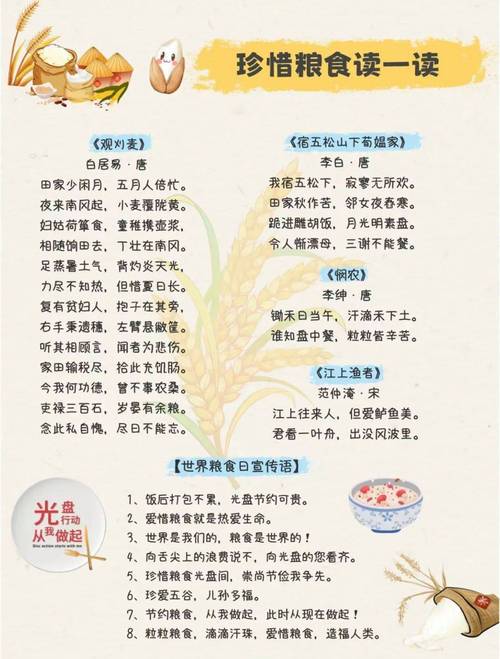 珍惜粮食读一读
《观刈麦》
白居易·唐
田家少闲月，五月人倍忙。
夜来南风起，小麦覆陇黄。
妇姑荷箪食，童稚携壶浆，
相随饷田去，丁壮在南冈。
足蒸暑土气，背灼炎天光，
力尽不知热，但惜夏日长。
复有贫妇人，抱子在其旁，
右手秉遗穗，左臂悬敝筐。
听其相顾言，闻者为悲伤。
家田输税尽，拾此充饥肠。
今我何功德，曾不事农桑。
吏禄三百石，岁晏有余粮。
念此私自愧，尽日不能忘。
《宿五松山下荀媪家》
李白·唐
我宿五松下，寂寥无所欢。
田家秋作苦，邻女夜舂寒。
跪进雕胡饭，月光明素盘。
令人惭漂母，三谢不能餐。
《悯农》
李绅·唐
锄禾日当午，汗滴禾下土。
谁知盘中餐，粒粒皆辛苦。
《江上渔者》
范仲淹·宋
江上往来人，但爱鲈鱼美。
君看一叶舟，出没风波里。
【世界粮食日宣传语】
1、饭后打包不累，光盘节约可贵。
2、爱惜粮食就是热爱生命。
3、世界是我们的，粮食是世界的！
4、向舌尖上的浪费说不，向光盘的您看齐。
5、珍惜粮食光盘间，崇尚节俭我争先。
6、珍爱五谷，儿孙多福。
7、节约粮食，从我做起，此时从现在做起！
8、粒粒粮食，滴滴汗珠，爱惜粮食，造福人类。
光盘行动
从我做起
One action starts with me